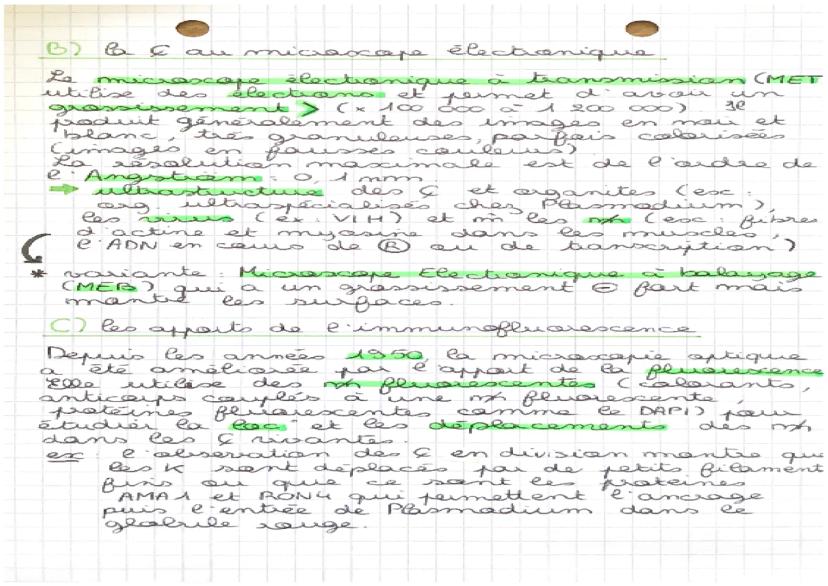 B) la Ȼ au microscope électronique
Le microscope électronique à transmission (MET
utilise des électrons et permet d'avoir un
grossissement > (x 100 000 à 1 200 000). Il
produit généralement des images en noir et
blanc, très granuleuses, parfois colorisées
(images en fausses couleurs)
La résolution maximale est de l'ordre de
l'Angstrom : 0,1 mm.
⇒ ultrastructure des Ȼ et organites (ex :
org. ultraspécialisés chez Plasmodium),
les virus (ex : VIH) et m̂ les (ex : fibres
d'actine et myosine dans les muscles,
l'ADN en cours de Ⓡ ou de transcription)
* variante : Microscope Electronique à balayage
(MEB) qui a un grossissement ⊖ fort mais
montre les surfaces.
C) les apports de l'immunofluorescence
Depuis les années 1950, la microscopie optique
a été améliorée par l'apport de la fluorescence
Elle utilise des fluorescentes (colorants,
anticorps couplés à une fluorescente,
protéines fluorescentes comme le DAPI) pour
étudier la loc° et les déplacements des
dans les Ȼ vivantes.
ex : l'observation des Ȼ en division montre que
les K sont déplacés par de petits filament
fins ou que ce sont les protéines
AMA1 et RON4 qui permettent l'ancrage
puis l'entrée de Plasmodium dans le
globule rouge.